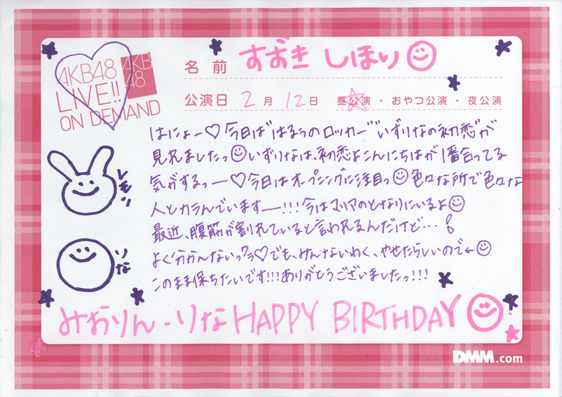 AKB48
LIVE!!
ON DEMAND
AKB
48
名前 すずき しほり
公演日 2月 12日 昼公演・おやつ公演・夜公演
はにょー♡今日は"はるぅのロッカー""いずりなの初恋"が
見れましたっ☺いずりなは、初恋よこんにちはが1番合ってる
気がするっー♡今日はオープニングに注目っ☺色々な所で色々な
人とカラんでいますー!!!今はマリアのとなりにいるよ☺
最近、腹筋が割れていると言われるんだけど…!
よく分かんないっ?ラ♡でも、みんないわく、やせたらしいので←☺
このまま保ちたいです!!!ありがとうございましたっ!!!
レモン
りな
みおりん・りな HAPPY BIRTHDAY☺
DMM.com